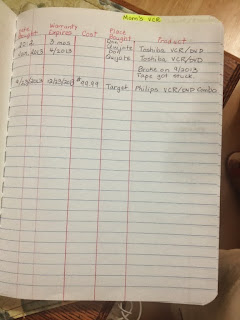 Mom's VCR
Date Bought Warranty Expires Cost Place Bought Product
2012 3 mos Don Quijote Toshiba VCR/DVD
Jan. 2013 4/2013 Don Quijote Toshiba VCR/DVD
Broke on 9/2013
Tape got stuck.
9/23/2013 12/23/2013 $99.99 Target Philips VCR/DVD Combo